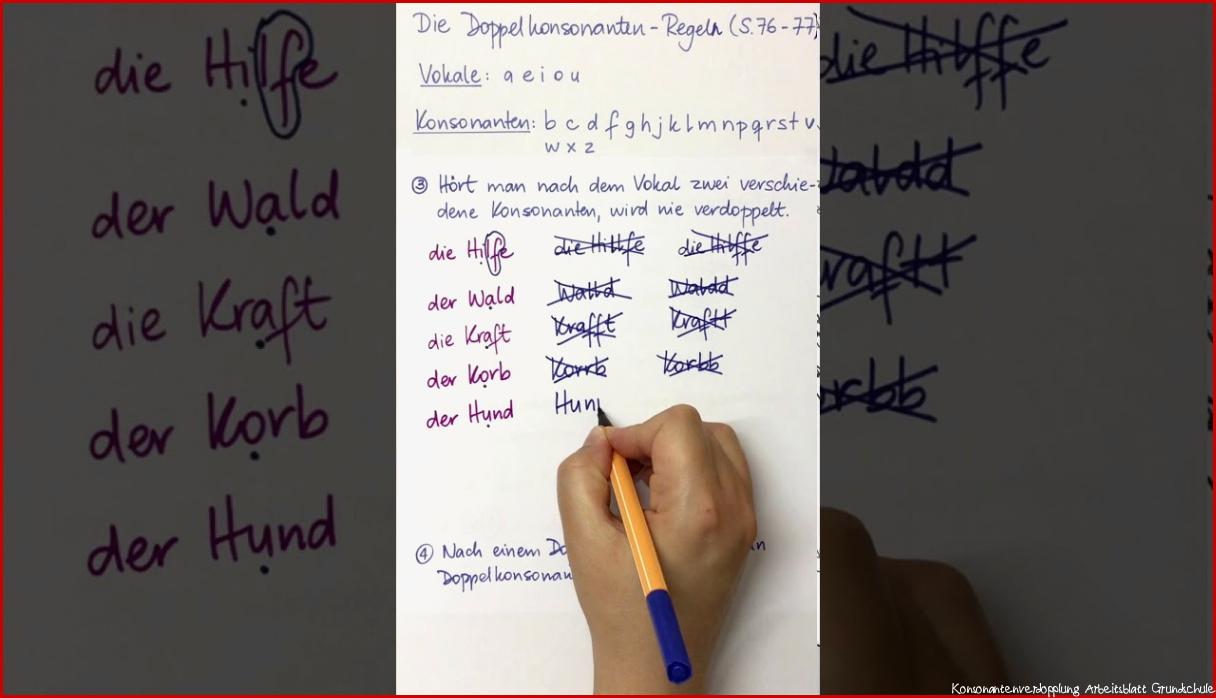 Die Doppelkonsonanten-Regeln (S.76-77)
Vokale: a e i o u
Konsonanten: b c d f g h j k l m n p q r s t v
w x z
③ Hört man nach dem Vokal zwei verschie-
dene Konsonanten, wird nie verdoppelt.
die Hilfe die Hillfe die Hilffe
der Wald Walld Waldd
die Kraft Krafft Kraftt
der Korb Korrb Korbb
der Hund Hun
④ Nach einem
Doppelkonsonan
die Hilfe
der Wald
die Kraft
der Korb
der Hund
die Hilffe
Konsonantenverdopplung Arbeitsblatt Grundschule